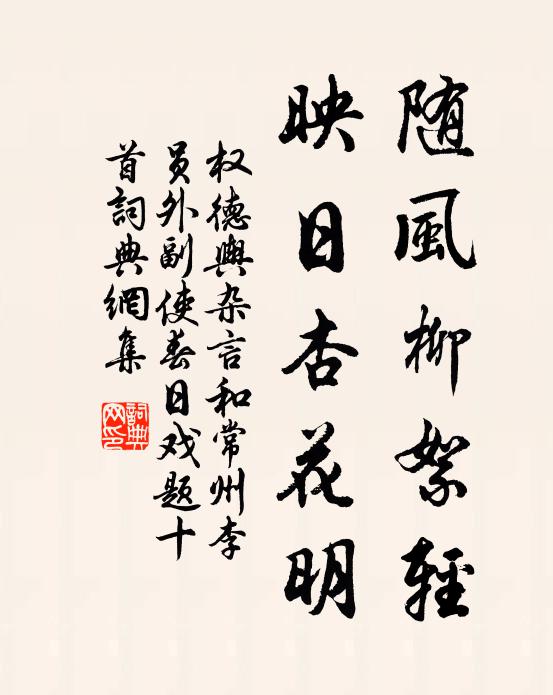 随風柳絮輕
映日杏花明
权德輿杂言和常州李
员外副使春日戏题十
首詞典網集
詞典
网印